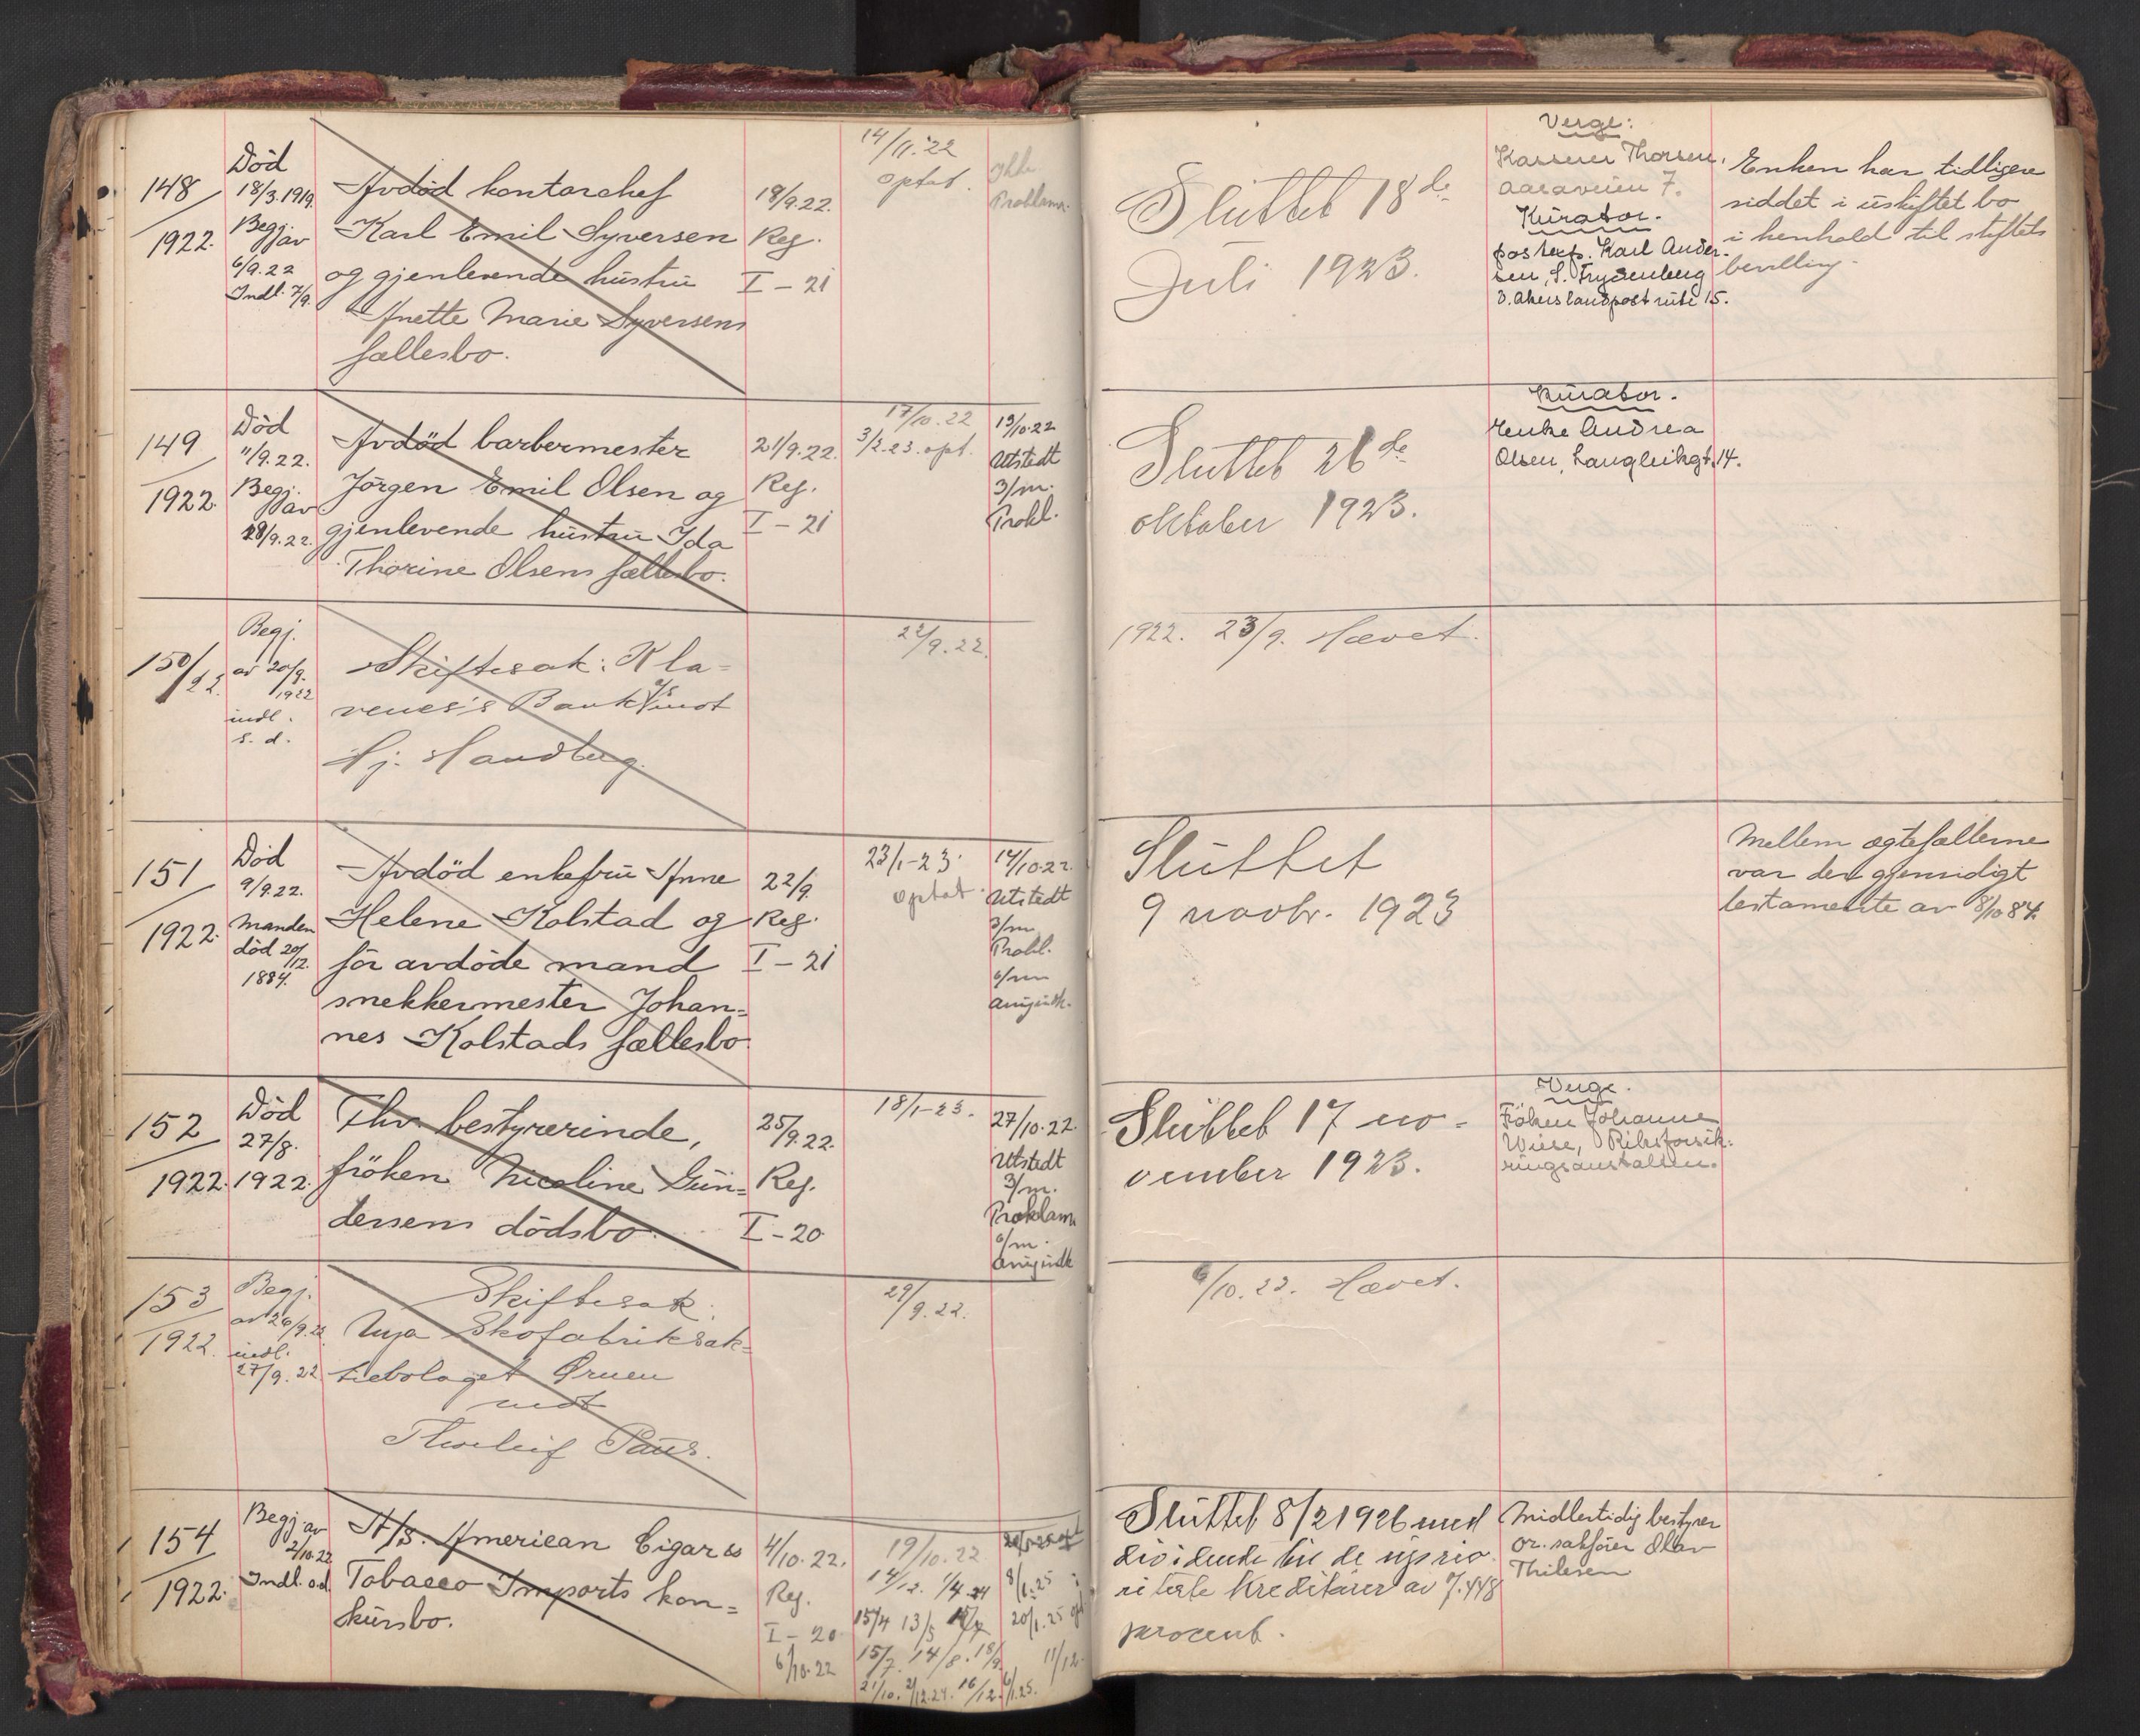 148
1922.
Død
18/3.1919.
Begj
av
6/9.22
Indl. 7/9.
Avdöd kontorchef
Karl Emil Syversen
og gjenlevende hustru
Anette Marie Syversens
fællesbo.
19/9.22.
Reg.
I – 21
14/11.22
optat.
Ikke
Proklama.
Sluttet 18de
Juli 1923.
Verge:
Kasserer Thorsen,
Kurator.
postexp. Karl Ander-
sen, S. Frydenberg
Ø. Akers landpostrute 15.
Enken har tidligere
siddet i uskiftet bo
i henhold til stiftets
bevilling.
149
1922.
Død
11/9.22.
Begj.
av
18/9.22.
Avdöd barbermester
Jörgen Emil Olsen og
gjenlevende hustru Ida
Thorine Olsens fællesbo.
21/9.22.
Reg.
I – 21
17/10.22
3/2.23. opt.
19/10.22
Utstedt
3/m.
Prokl.
Sluttet 26de
oktober 1923.
Kurator.
Enke Andrea
Olsen, Langleikgt. 14.
150/22.
Begj.
av 20/9.
1922
indl.
s. d.
Skiftesak: Kla-
veness's Bank A/S mot
Hj. Sandberg.
22/9.22.
1922. 23/9. Hævet.
151
1922.
Død
9/9.22.
Manden
död 20/12.
1884.
Avdöd enkefru Anne
Helene Kolstad og
för avdöde mand
snekkermester Johan=
nes Kolstads fællesbo
22/9.
Reg.
I – 21
23/1-23.
optat.
14/10.22.
Utstedt
3/m
Prokl.
6/m
arvgindk.
Sluttet
9 novbr. 1923
Mellem ægtefællerne
var der gjensidigt
testamente av 8/10 84.
152
1922.
Død
27/8.
1922.
Fhv. bestyrerinde,
fröken Nicoline Gun=
dersens dödsbo.
25/9.22.
Reg.
I – 20
18/1-23.
27/10.22.
Utstedt
3/m.
Proklama
6/m.
arvgindk
Sluttet 17 no-
vember 1923.
Verge.
Fröken Johanne
Wiese, Riksforsik-
ringsanstalten.
153
1922.
Begj.
av 26/9.22
indl.
27/9.22
Skiftesak:
Nya Skofabriksak=
tiebolaget Örnen
mot
Thorleif Paus.
29/9.22.
6/10.22. Hævet.
154
1922.
Begj. av
2/10.22
Indl. s.d.
A/S. American Cigar &
Tobacco Imports kon=
kursbo.
4/10.22.
Reg.
I – 20
6/10.22
19/10.22
14/12. 1/4.24
15/4 13/5
15/7. 14/8. 18/9
21/10. 2/12.24. 16/12. 6/1.25.
8/1.25
20/1.25
11/12.
Sluttet 8/2 1926 med
dividende til de uprio-
riterte kreditorer av 7.448
procent.
Midlertidig bestyrer
or. sakförer Olav
Thilesen